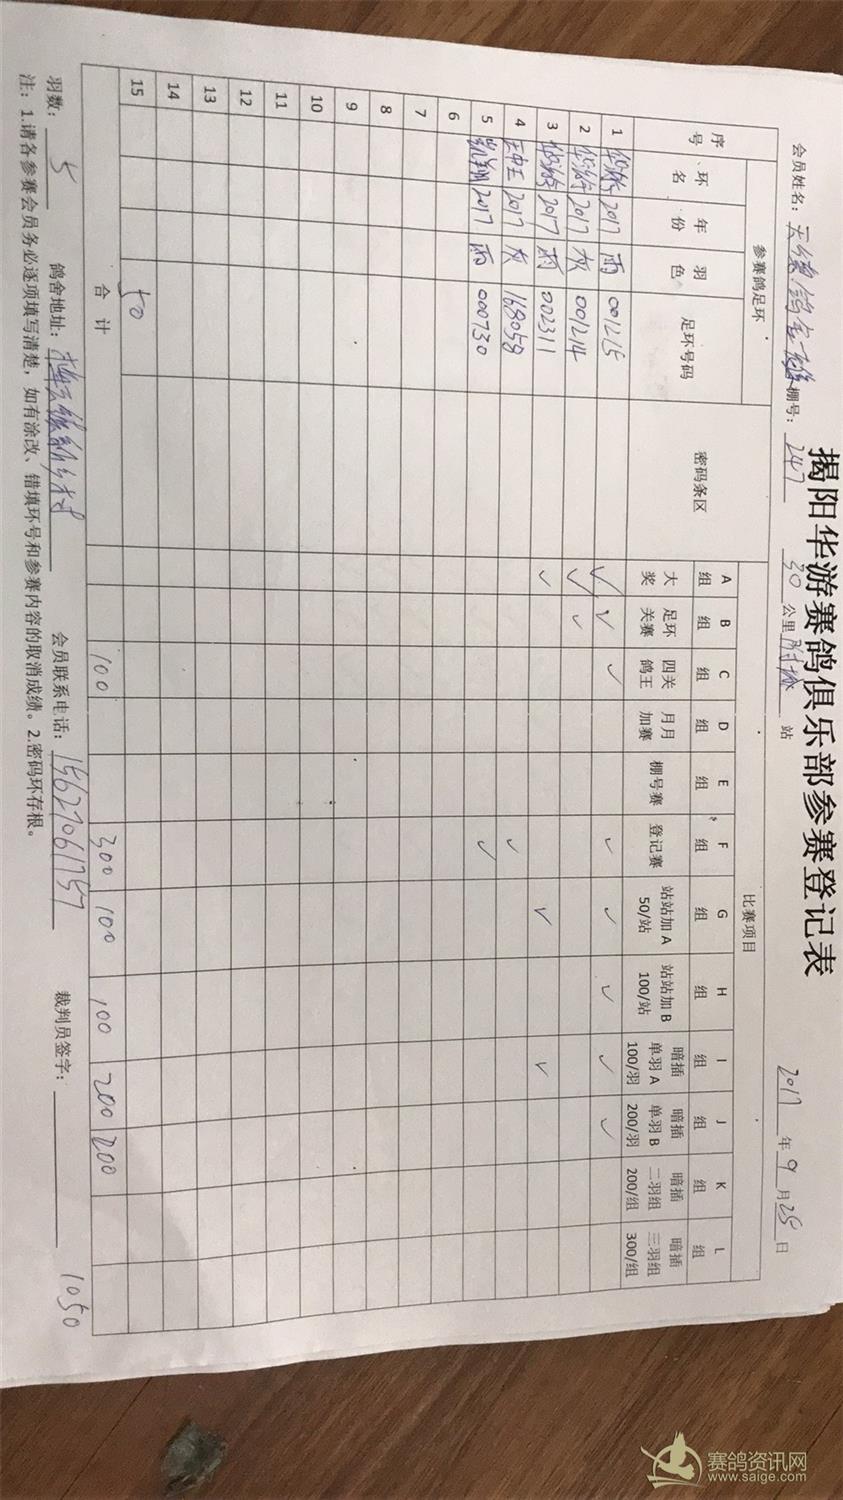 揭阳华游赛鸽俱乐部参赛登记表
会员姓名: 棚号: 247 30 公里 站 2017 年 9 月 25 日
序号 参赛鸽足环 密码条区 比赛项目
环名 年份 羽色 足环号码 A组 B组 C组 D组 E组 F组 G组 H组 I组 J组 K组 L组
大奖 足环关赛 四关鸽王 月月加赛 棚号赛 登记赛 站站加A 50/站 站站加B 100/站 暗插单羽A 100/羽 暗插单羽B 200/羽 暗插二羽组 200/组 暗插三羽组 300/组
1 华游 2017 雨 001215 ✓ ✓ ✓ ✓ ✓ ✓ ✓ ✓
2 华游 2017 灰 001214 ✓ ✓
3 华游 2017 雨 002311 ✓ ✓ ✓
4 王中王 2017 灰 168058 ✓
5 凯翔 2017 雨 000730 ✓
6
7
8
9
10
11
12
13
14
15 50
合计 100 300 100 100 200 200
羽数: 5 鸽舍地址: 会员联系电话: 15627061757 裁判员签字: 1050
注: 1.请各参赛会员务必逐项填写清楚，如有涂改、错填环号和参赛内容的取消成绩。2.密码环存根。
赛鸽资讯网
www.saige.com